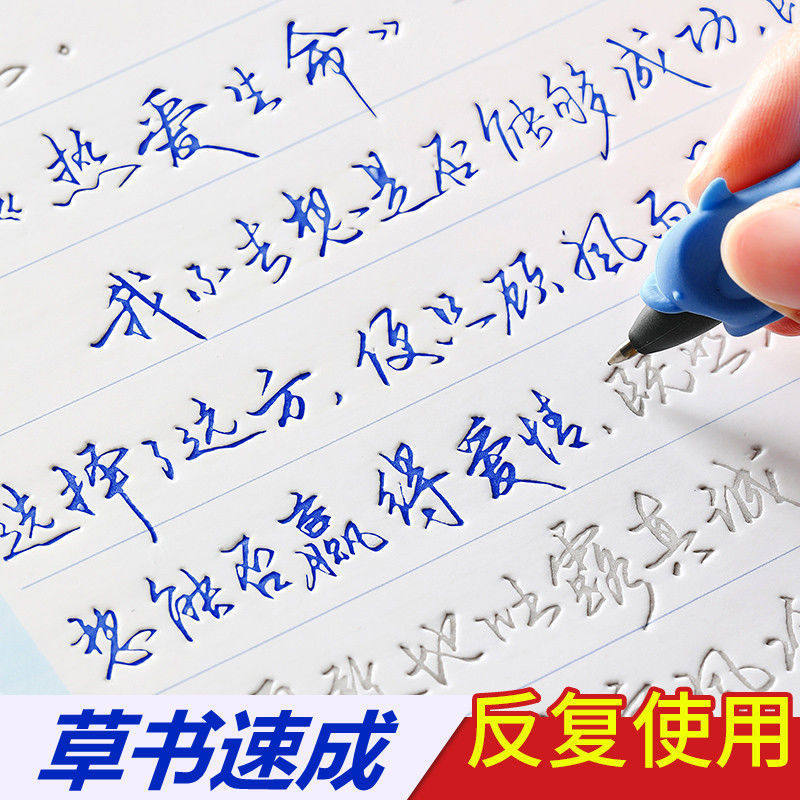 《热爱生命》
我不去想是否能够成功，
选择了远方，便只顾风雨
想能否赢得爱情，既然
地吐露真诚
草书速成
反复使用